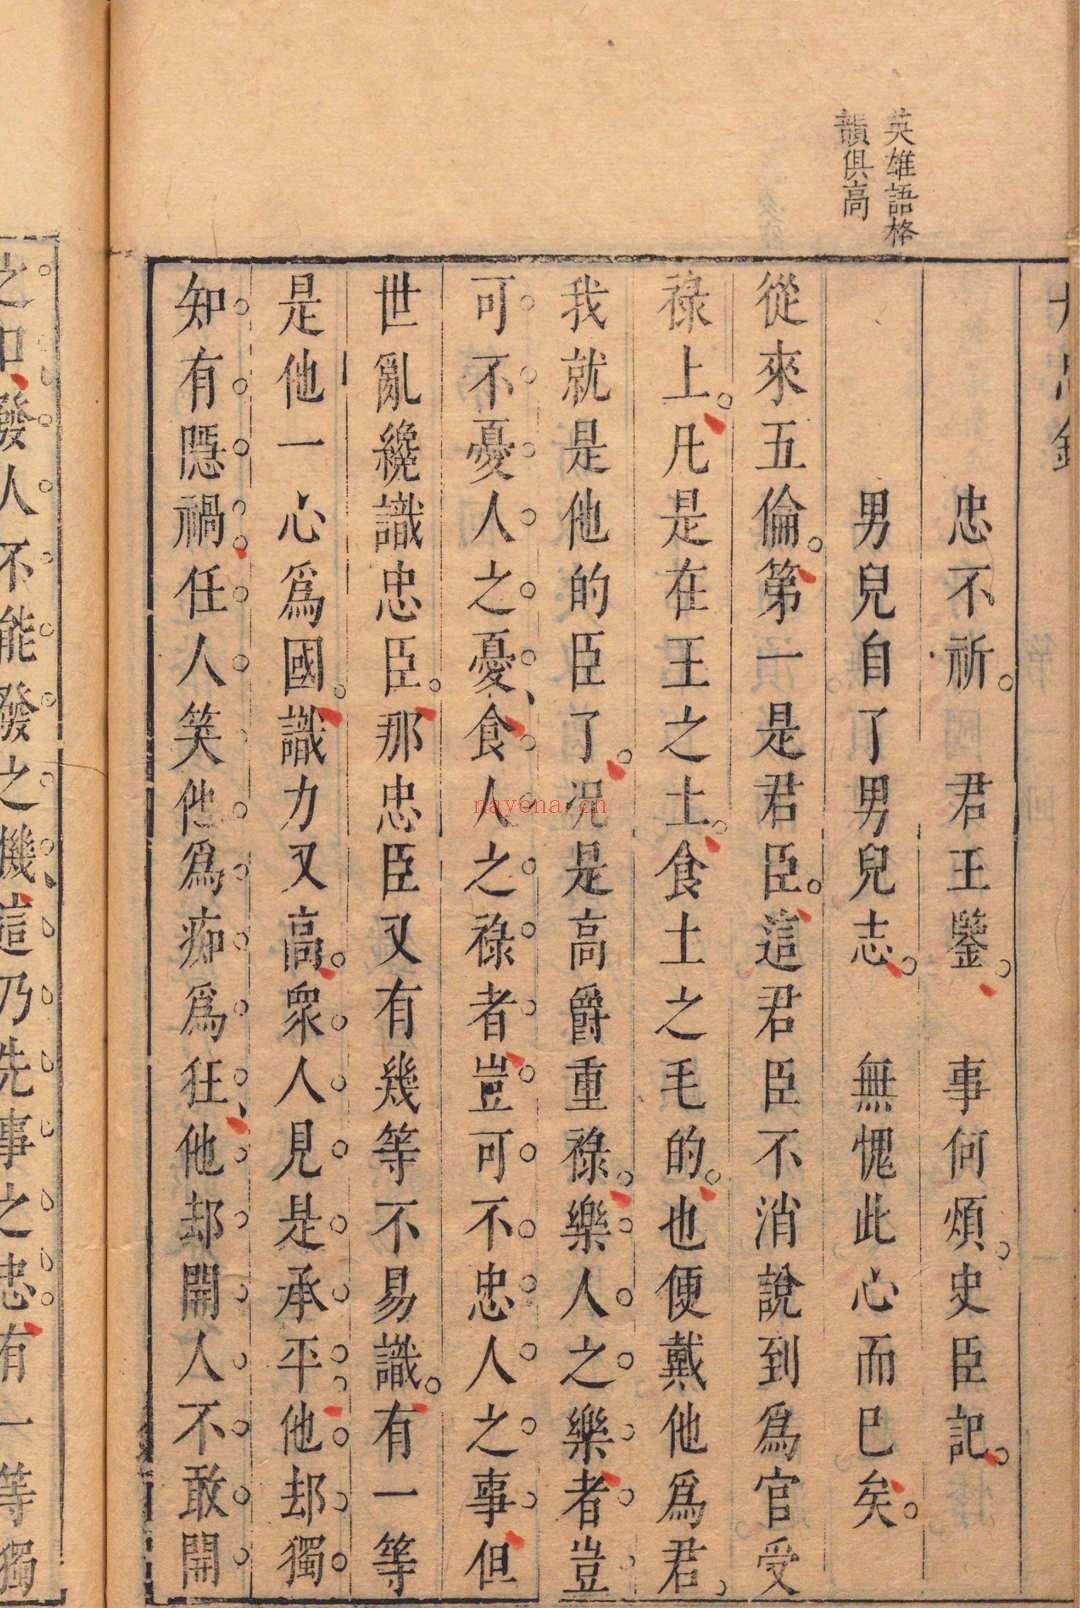 英雄語格
韻俱高
忠不祈。君王鑒。事何煩。史臣記。
男兒自了男兒志。無愧此心而已矣。
從來五倫。第一是君臣。這君臣不消說到爲官受
祿上。凡是在王之土。食土之毛的。也便戴他爲君。
我就是他的臣了。况是高爵重祿。樂人之樂者。豈
可不憂人之憂、食人之祿者。豈可不忠人之事。但
世亂纔識忠臣。那忠臣又有幾等不易識。有一等
是他一心爲國。識力又高。衆人見是承平。他却獨
知有隱禍。任人笑他爲痴爲狂、他却開人不敢開
之口、發人不能發之機、這乃先事之忠。有一等獨
nayona.cn